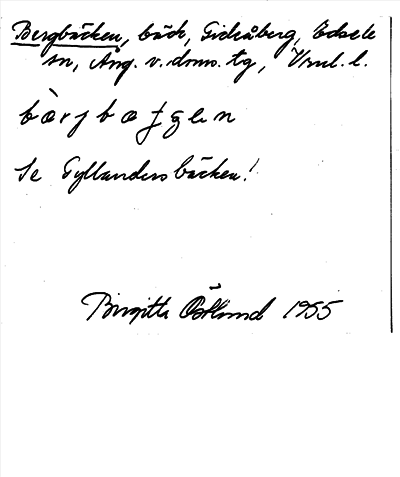 Bergbäcken, bäck, Gideåberg, Edsele
sn, Ång. v. doms. tg, Vrnl. l.
Se Gyllandersbäcken!
Birgitta Östlund 1955